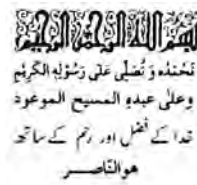 بسم الله الرحمن الرحيم
نحمدہ و نصلی علی رسولہ الکریم
وعلی عبدہ المسیح الموعود
خدا کے فضل اور رحم کے ساتھ
ھوالناصر